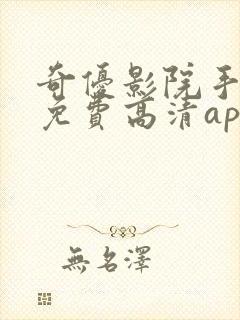 奇優影院手
免費高清ap
無名澤